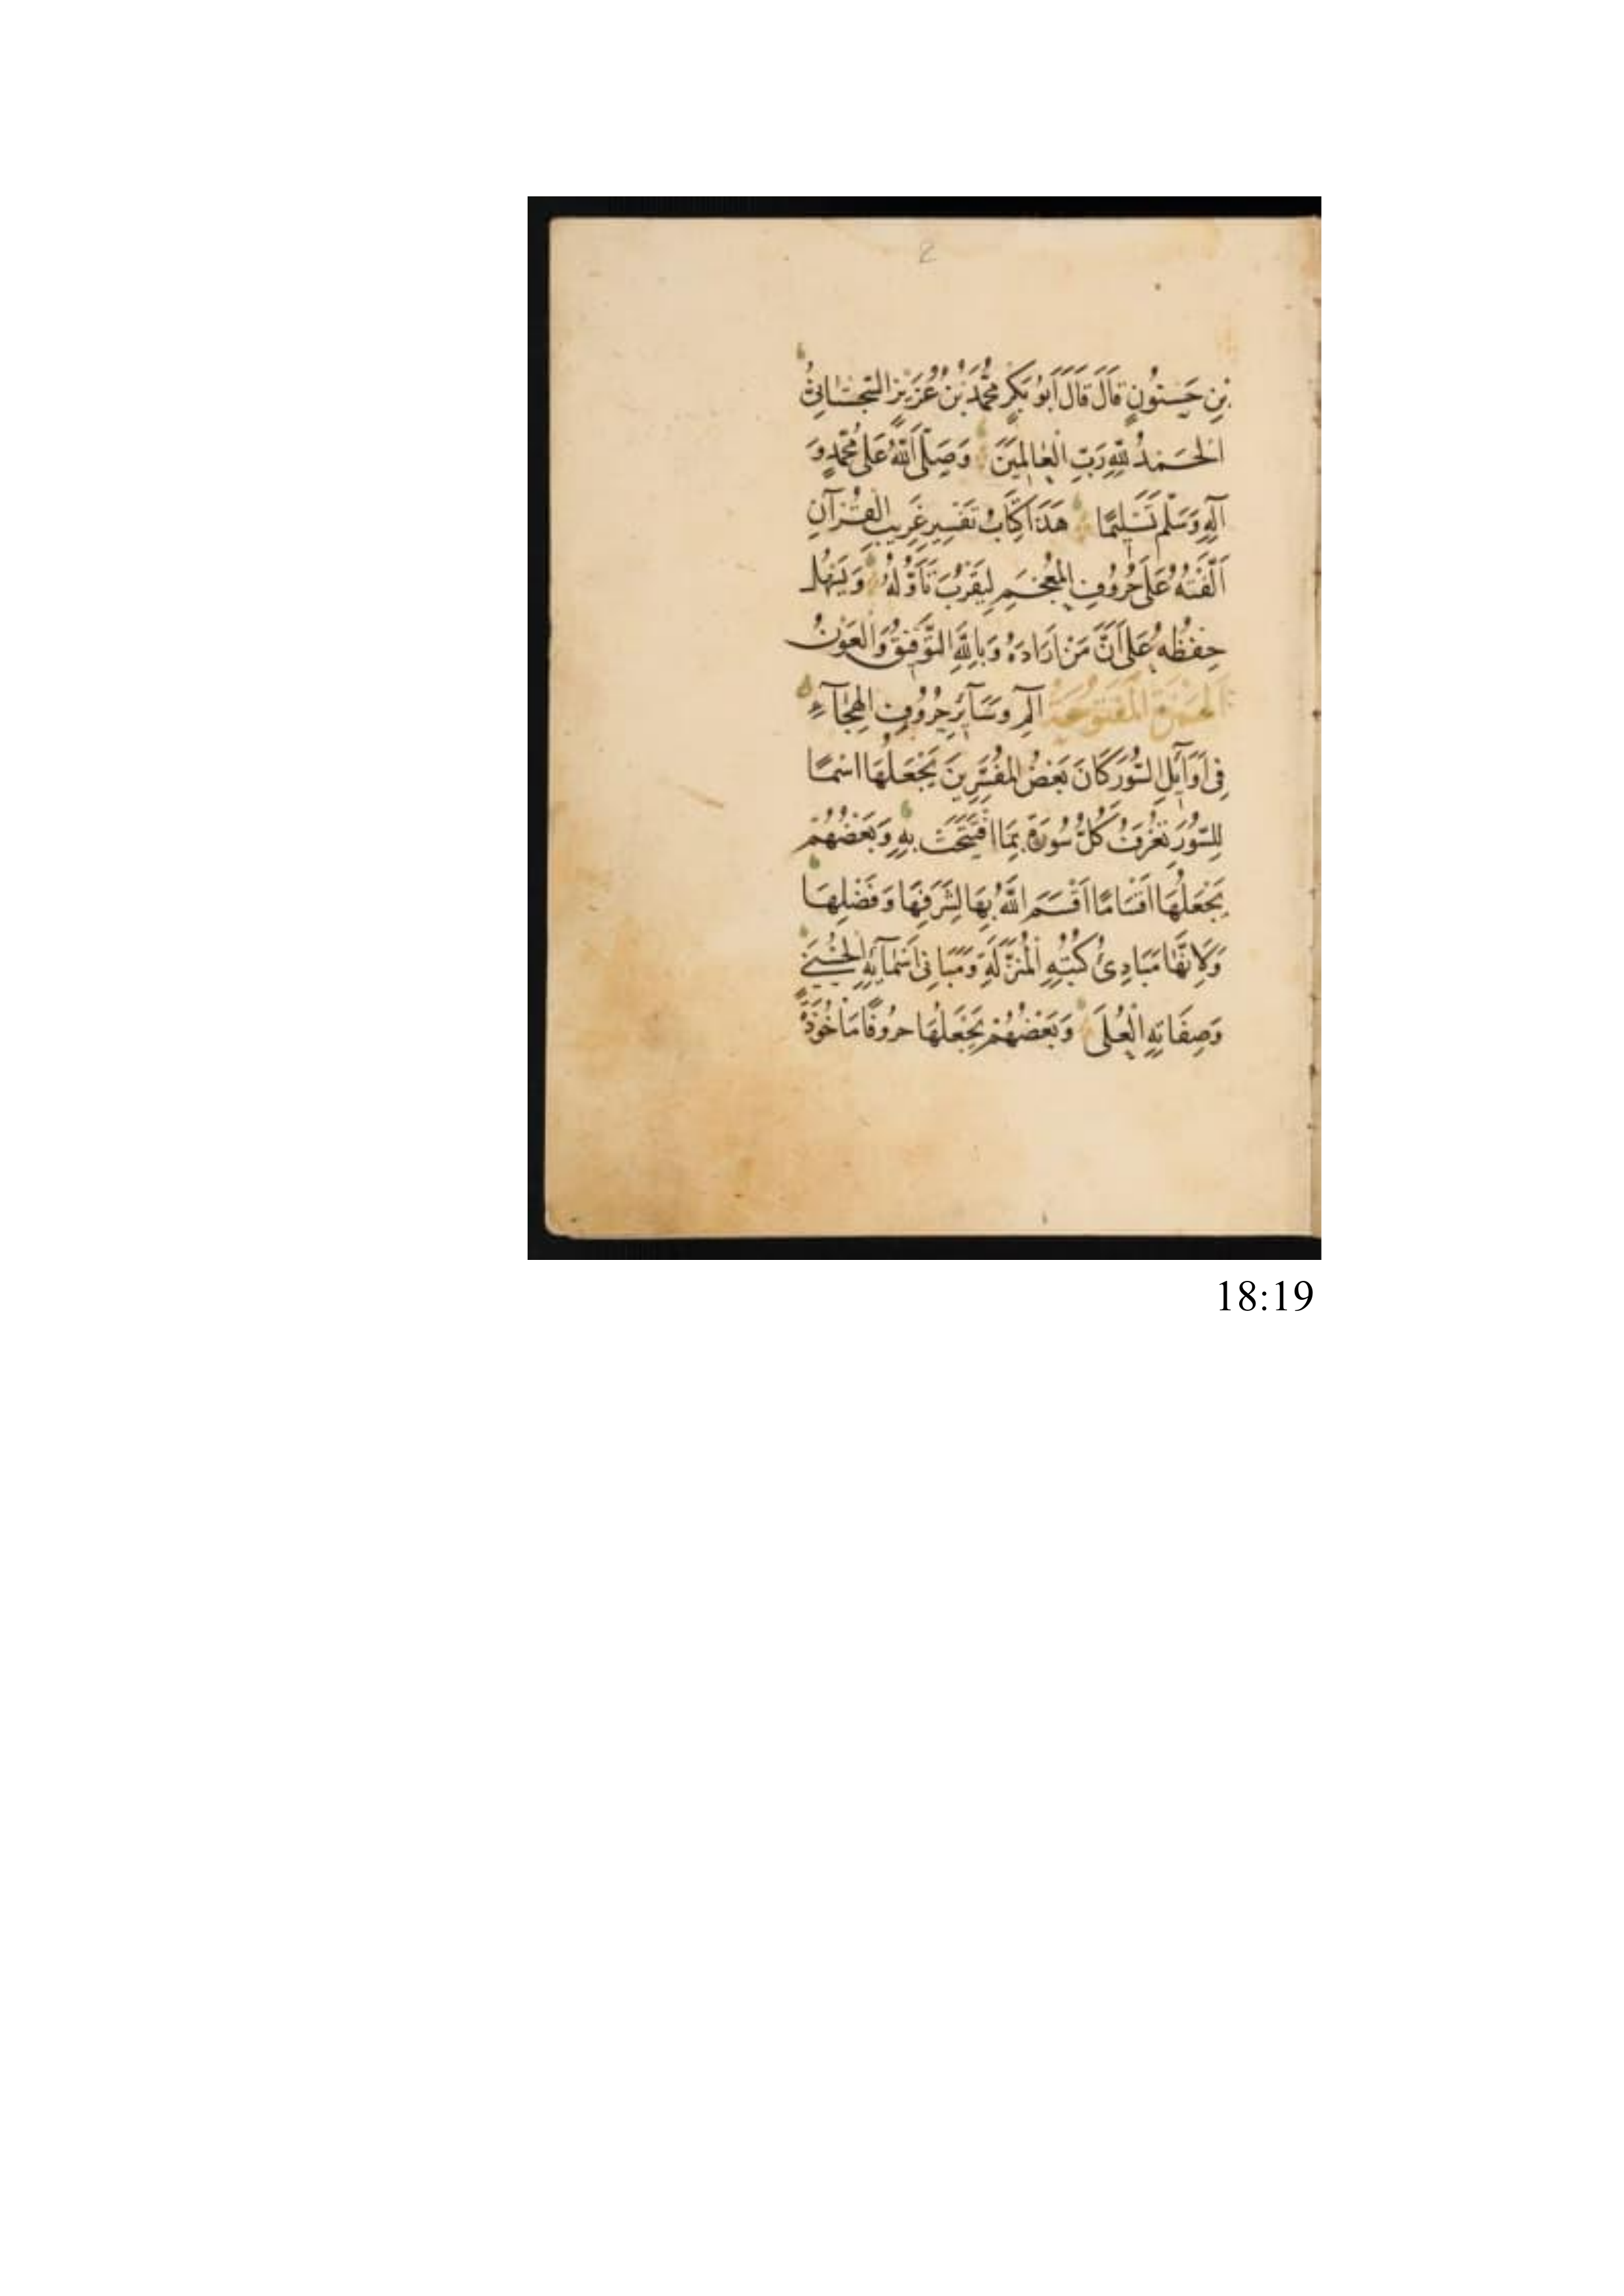 2
بْنِ حَسْنُونٍ قَالَ قَالَ أَبُو بَكْرٍ مُحَمَّدُ بْنُ عُزَيْزٍ السِّجِسْتَانِيُّ
الْحَمْدُ لِلّٰهِ رَبِّ الْعَالَمِينَ وَصَلَّى اللّٰهُ عَلَى مُحَمَّدٍ وَ
آلِهِ وَسَلَّمَ تَسْلِيمًا هَذَا كِتَابُ تَفْسِيرِ غَرِيبِ الْقُرْآنِ
أَلَّفْتُهُ عَلَى حُرُوفِ الْمُعْجَمِ لِيَقْرُبَ تَأَوُّلُهُ وَيَسْهُلَ
حِفْظُهُ عَلَى أَنَّ مَنْ أَرَادَهُ وَبِاللّٰهِ التَّوْفِيقُ وَالْعَوْنُ
الْهَمْزَةُ الْمَفْتُوحَةُ الٓمٓ وَسَآئِرُ حُرُوفِ الْهِجَآءِ
فِى أَوَآئِلِ السُّوَرِ كَانَ بَعْضُ الْمُفَسِّرِينَ يَجْعَلُهَا اسْمًا
لِلسُّوَرِ تُعْرَفُ كُلُّ سُورَةٍ بِمَا افْتُتِحَتْ بِهِ وَبَعْضُهُمْ
يَجْعَلُهَا أَقْسَامًا أَقْسَمَ اللّٰهُ بِهَا لِشَرَفِهَا وَفَضْلِهَا
وَلِأَنَّهَا مَبَادِئُ كُتُبِهِ الْمُنَزَّلَةِ وَمَبَانِى أَسْمَآئِهِ الْحُسْنَى
وَصِفَاتِهِ الْعُلَى وَبَعْضُهُمْ يَجْعَلُهَا حُرُوفًا مَأْخُوذَةً
18:19